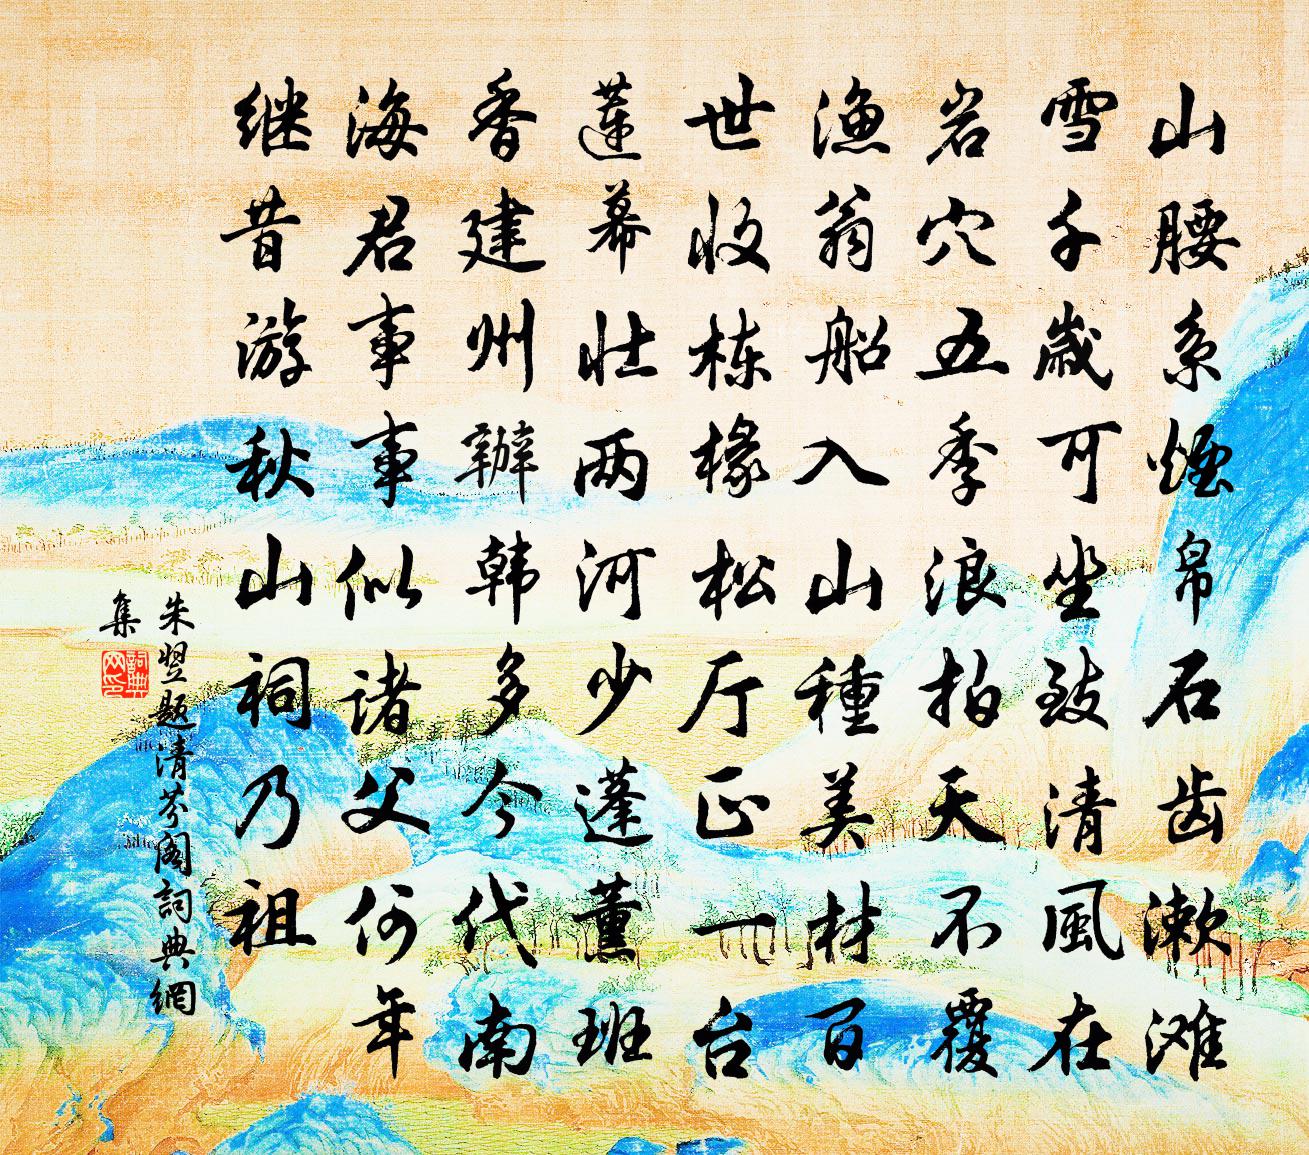 山腰系烟帛石齿漱滩
雪千岁可坐致清風在
岩穴五季浪拍天不覆
渔翁船入山種美材百
世收栋椽松厅正一台
莲幕壮两河少蓬薰班
香建州辦韩多今代南
海君事事似诸父何年
继昔游秋山祠乃祖
朱翌题清芬阁詞典網
集
詞典网印